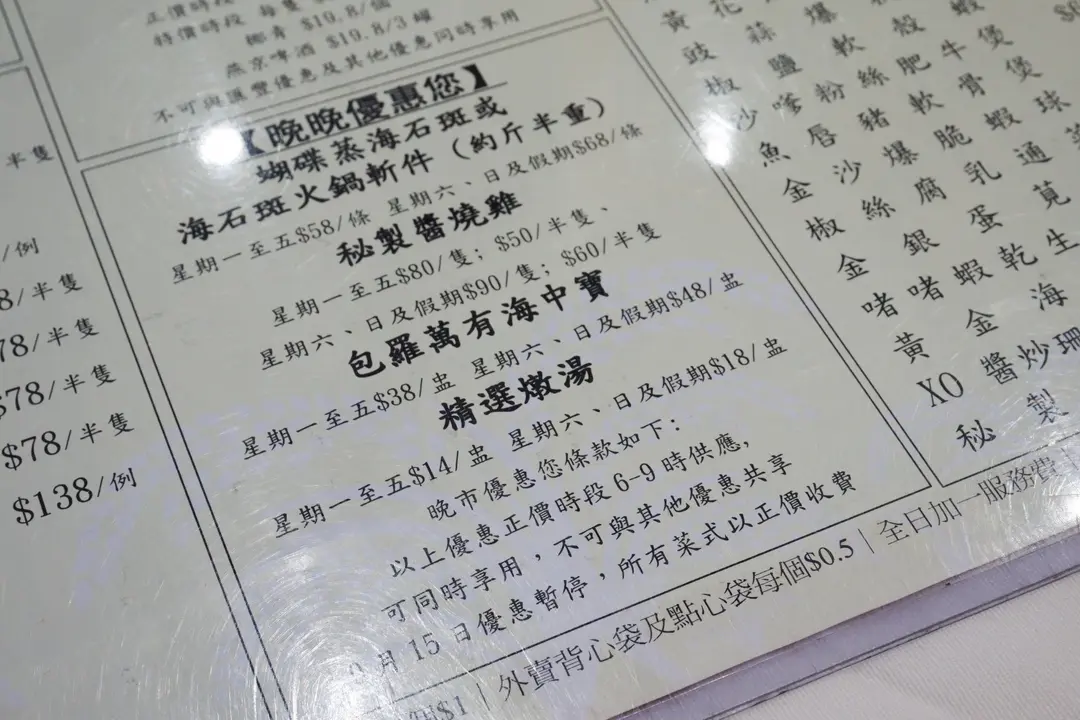 正價時段
特價時段 每隻
$19.8/個
椰青
燕京啤酒 $19.8/3 罐
不可與滙豐優惠及其他優惠同時享用
【晚晚優惠您】
蝴蝶蒸海石斑或
海石斑火鍋斬件（約斤半重）
星期一至五$58/條 星期六、日及假期$68/條
秘製醬燒雞
星期一至五$80/隻; $50/半隻、
星期六、日及假期$90/隻; $60/半隻
包羅萬有海中寶
星期一至五$38/盅 星期六、日及假期$48/盅
精選燉湯
星期一至五$14/盅 星期六、日及假期$18/盅
晚市優惠您條款如下:
以上優惠正價時段 6-9 時供應,
可同時享用，不可與其他優惠共享
月 15 日優惠暫停，所有菜式以正價收費
個$1｜外賣背心袋及點心袋每個$0.5｜全日加一服務費
半隻
/例
8/半隻
78/半隻
$78/半隻
$78/半隻
$138/例
黃花
豉蒜爆
椒鹽軟殼蟹
沙嗲粉絲肥牛煲
魚唇豬軟骨煲
金沙爆脆蝦球
椒絲腐乳通菜
金銀蛋莧
啫啫蝦乾生
黃金海
XO 醬炒珊
秘製